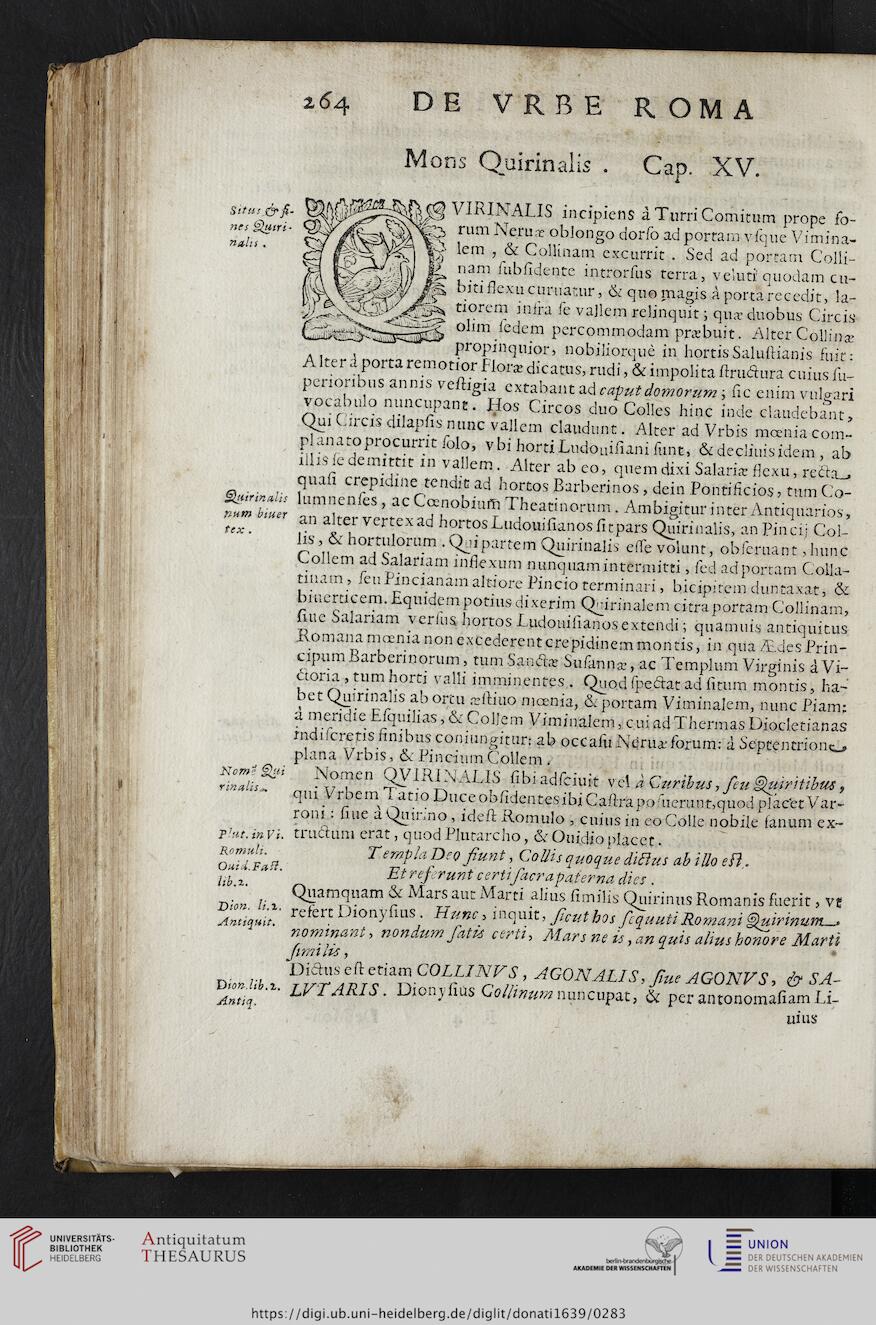 264 DE VRBE ROMA
Mons Quirinalis . Cap. XV.
Situs & fi-
nes Quiri-
nalis .
QVIRINALIS incipiens à Turri Comitum prope fo-
rum Neruæ oblongo dorſo ad portam vſque Vimina-
lem , & Collinam excurrit . Sed ad portam Colli-
nam ſubſidente introrſus terra, veluti quodam cu-
biti flexu curuatur, & quo magis à porta recedit, la-
tiorem infra ſe vallem relinquit ; quæ duobus Circis
olim ſedem percommodam præbuit. Alter Collinæ
propinquior, nobiliorquè in hortis Saluſtianis fuit:
Alter à porta remotior Floræ dicatus, rudi, & impolita ſtructura cuius ſu-
perioribus annis veſtigia extabant ad caput domorum ; ſic enim vulgari
vocabulo nuncupant. Hos Circos duo Colles hinc inde claudebant,
Qui Circis dilapſis nunc vallem claudunt. Alter ad Vrbis mœnia com-
planato procurrit ſolo, vbi horti Ludouiſiani ſunt, & decliuis idem, ab
illis ſe demittit in vallem. Alter ab eo, quem dixi Salariæ flexu, recta
quaſi crepidine tendit ad hortos Barberinos, dein Pontificios, tum Co-
Quirinalis
num biuer
tex .
lumnenſes, ac Cœnobium Theatinorum. Ambigitur inter Antiquarios,
an alter vertex ad hortos Ludouiſianos ſit pars Quirinalis, an Pincij Col-
lis, & hortulorum . Qui partem Quirinalis eſſe volunt, obſeruant, hunc
Collem ad Salariam inflexum nunquam intermitti, ſed ad portam Colla-
tinam, ſeu Pincianam altiore Pincio terminari, bicipitem duntaxat, &
biuerticem. Equidem potius dixerim Quirinalem citra portam Collinam,
ſiue Salariam verſus hortos Ludouiſianos extendi ; quamuis antiquitus
Romana mœnia non excederent crepidinem montis, in qua Ædes Prin-
cipum Barberinorum, tum Sanctæ Suſannæ, ac Templum Virginis à Vi-
ctoria, tum horti valli imminentes. Quod ſpectat ad ſitum montis, ha-
bet Quirinalis ab ortu æſtiuo mœnia, & portam Viminalem, nunc Piam:
à meridie Eſquilias, & Collem Viminalem, cui ad Thermas Diocletianas
indiſcretis finibus coniungitur: ab occaſu Neruæ forum: à Septentrione
plana Vrbis, & Pincium Collem.
Nomē Qui
rinalis.
Nomen QVIRINALIS ſibi adſciuit vel à Curibus, ſeu Quiritibus,
qui Vrbem Tatio Duce obſidentes ibi Caſtra poſuerunt, quod placet Var-
roni : ſiue à Quirino, ideſt Romulo, cuius in eo Colle nobile fanum ex-
Plut. in Vi.
Romuli.
Ouid. Faſt.
lib.2.
tructum erat, quod Plutarcho, & Ouidio placet.
Templa Deo fiunt, Collis quoque dictus ab illo eſt,
Et referunt certi ſacra paterna dies .
Quamquam & Mars aut Marti alius ſimilis Quirinus Romanis fuerit, vt
Dion. li.2.
Antiquit.
refert Dionyſius. Hunc, inquit, ſicut hos ſequuti Romani Quirinum
nominant, nondum ſatis certi, Mars ne is, an quis alius honore Marti
ſimilis,
Dictus eſt etiam COLLINVS, AGONALIS, ſiue AGONVS, & SA-
Dion.lib.2.
Antiq.
LVTARIS. Dionyſius Collinum nuncupat, & per antonomaſiam Li-
uius
UNIVERSITÄTS-
BIBLIOTHEK
HEIDELBERG
Antiquitatum
THESAURUS
berlin-brandenburgische
AKADEMIE DER WISSENSCHAFTEN
UNION
DER DEUTSCHEN AKADEMIEN
DER WISSENSCHAFTEN
https://digi.ub.uni-heidelberg.de/diglit/donati1639/0283